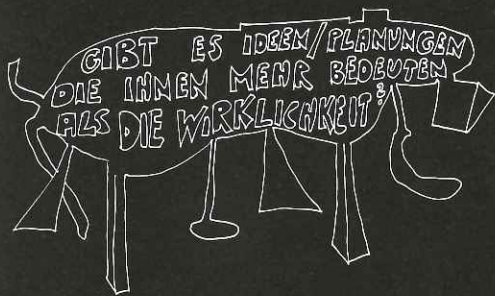 GIBT ES IDEEN/PLANUNGEN
DIE IHNEN MEHR BEDEUTEN
ALS DIE WIRKLICHKEIT?